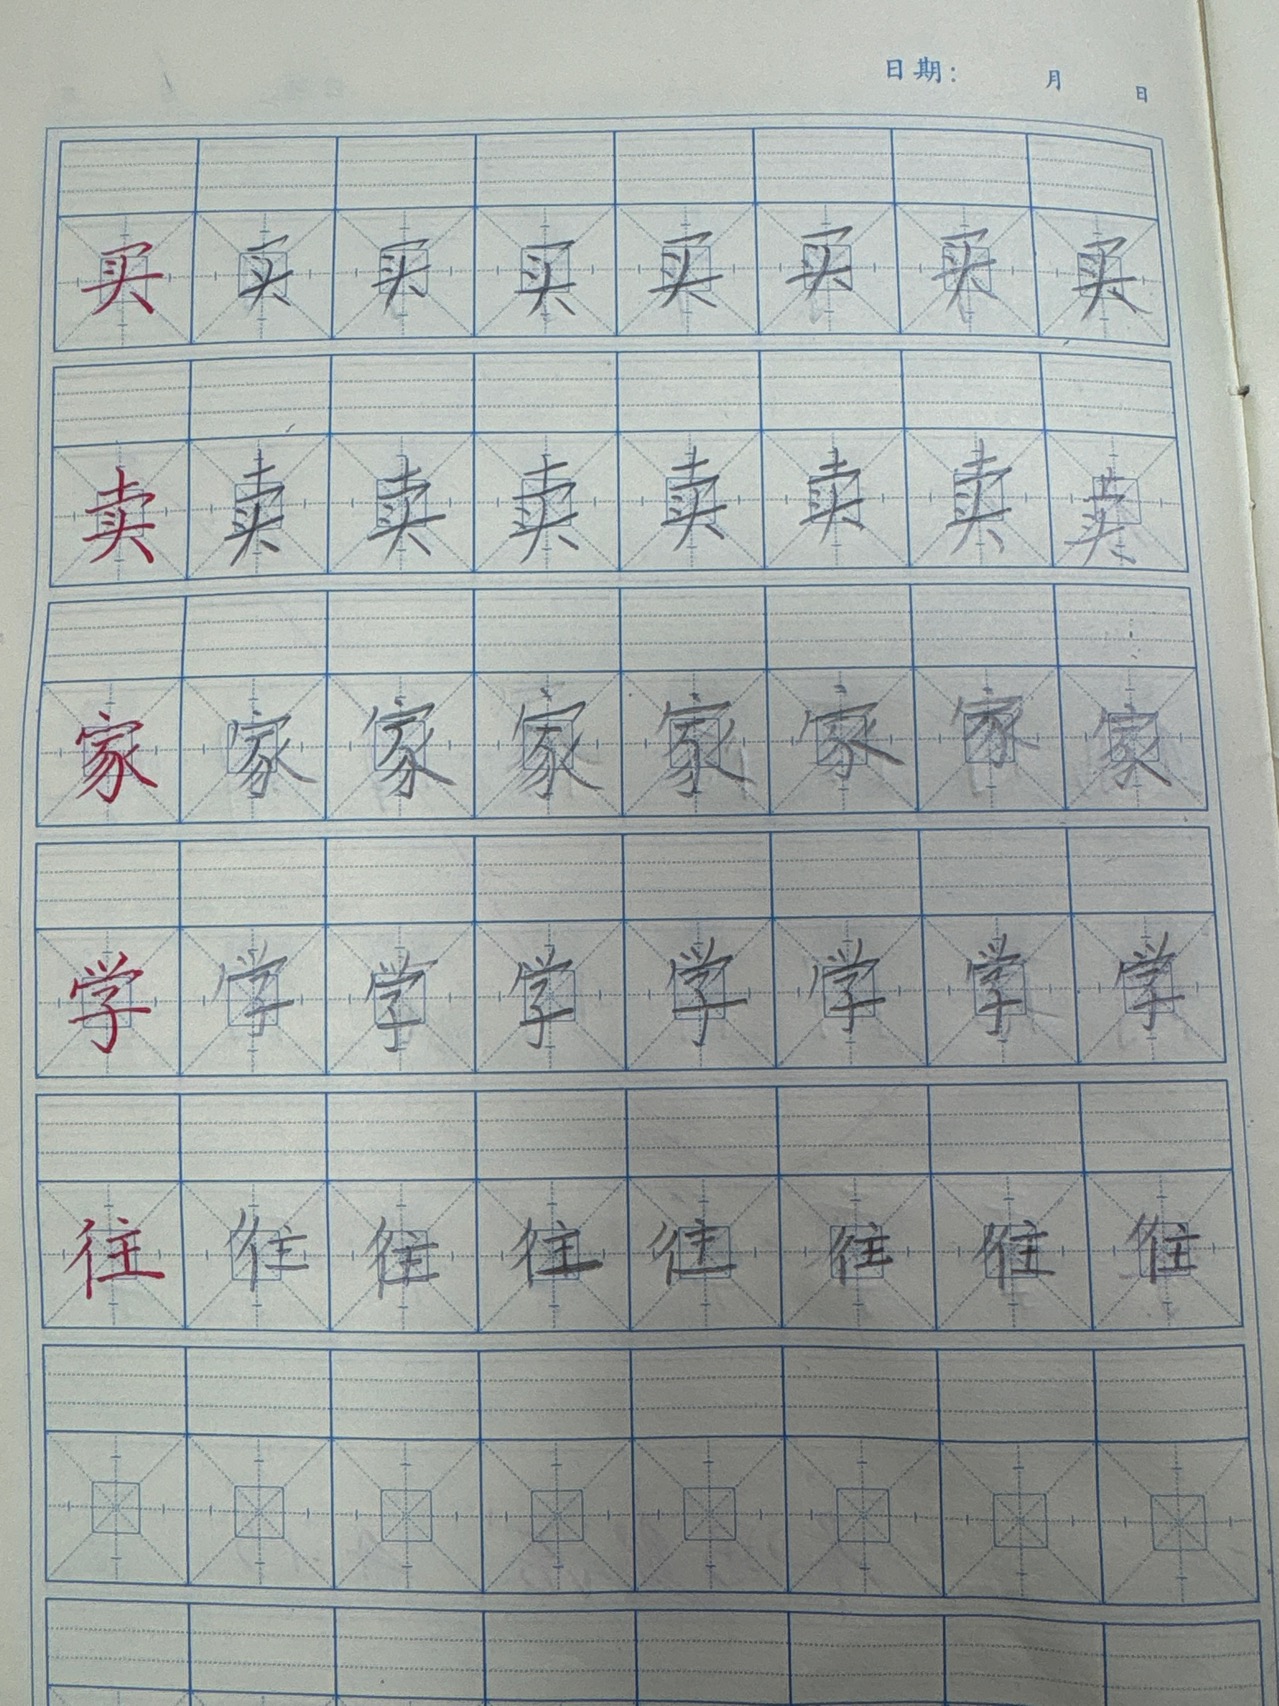 日期: 月 日
买 买 买 买 买 买 买 买
卖 卖 卖 卖 卖 卖 卖 卖
家 家 家 家 家 家 家 家
学 学 学 学 学 学 学 学
往 往 往 往 往 往 往 往